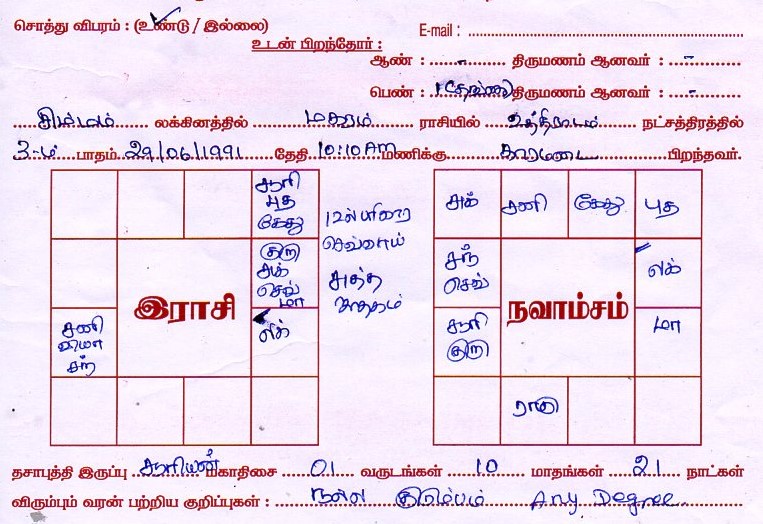 சொத்து விபரம் : (உண்டு / இல்லை)
E-mail :
உடன் பிறந்தோர் :
ஆண் : - திருமணம் ஆனவர் : -
பெண் : 1 திருமணம் ஆனவர் : -
சிம்மம் லக்கினத்தில் மகரம் ராசியில் உத்திராடம் நட்சத்திரத்தில்
3-ம் பாதம் 29/06/1991 தேதி 10:10 AM மணிக்கு காரமடை பிறந்தவர்.
சூரி
புத
கேது
குரு
சுக்
செவ்
மா
லக்
சனி
சந்
இராசி
12ல்
செவ்வாய்
சுத்த
ஜாதகம்
சுக்
சனி
கேது
புத
சந்
செவ்
லக்
சூரி
குரு
மா
ராகு
நவாம்சம்
தசாபுத்தி இருப்பு சூரியன் மகாதிசை 01 வருடங்கள் 10 மாதங்கள் 21 நாட்கள்
விரும்பும் வரன் பற்றிய குறிப்புகள் : நல்ல குடும்பம் Any Degree